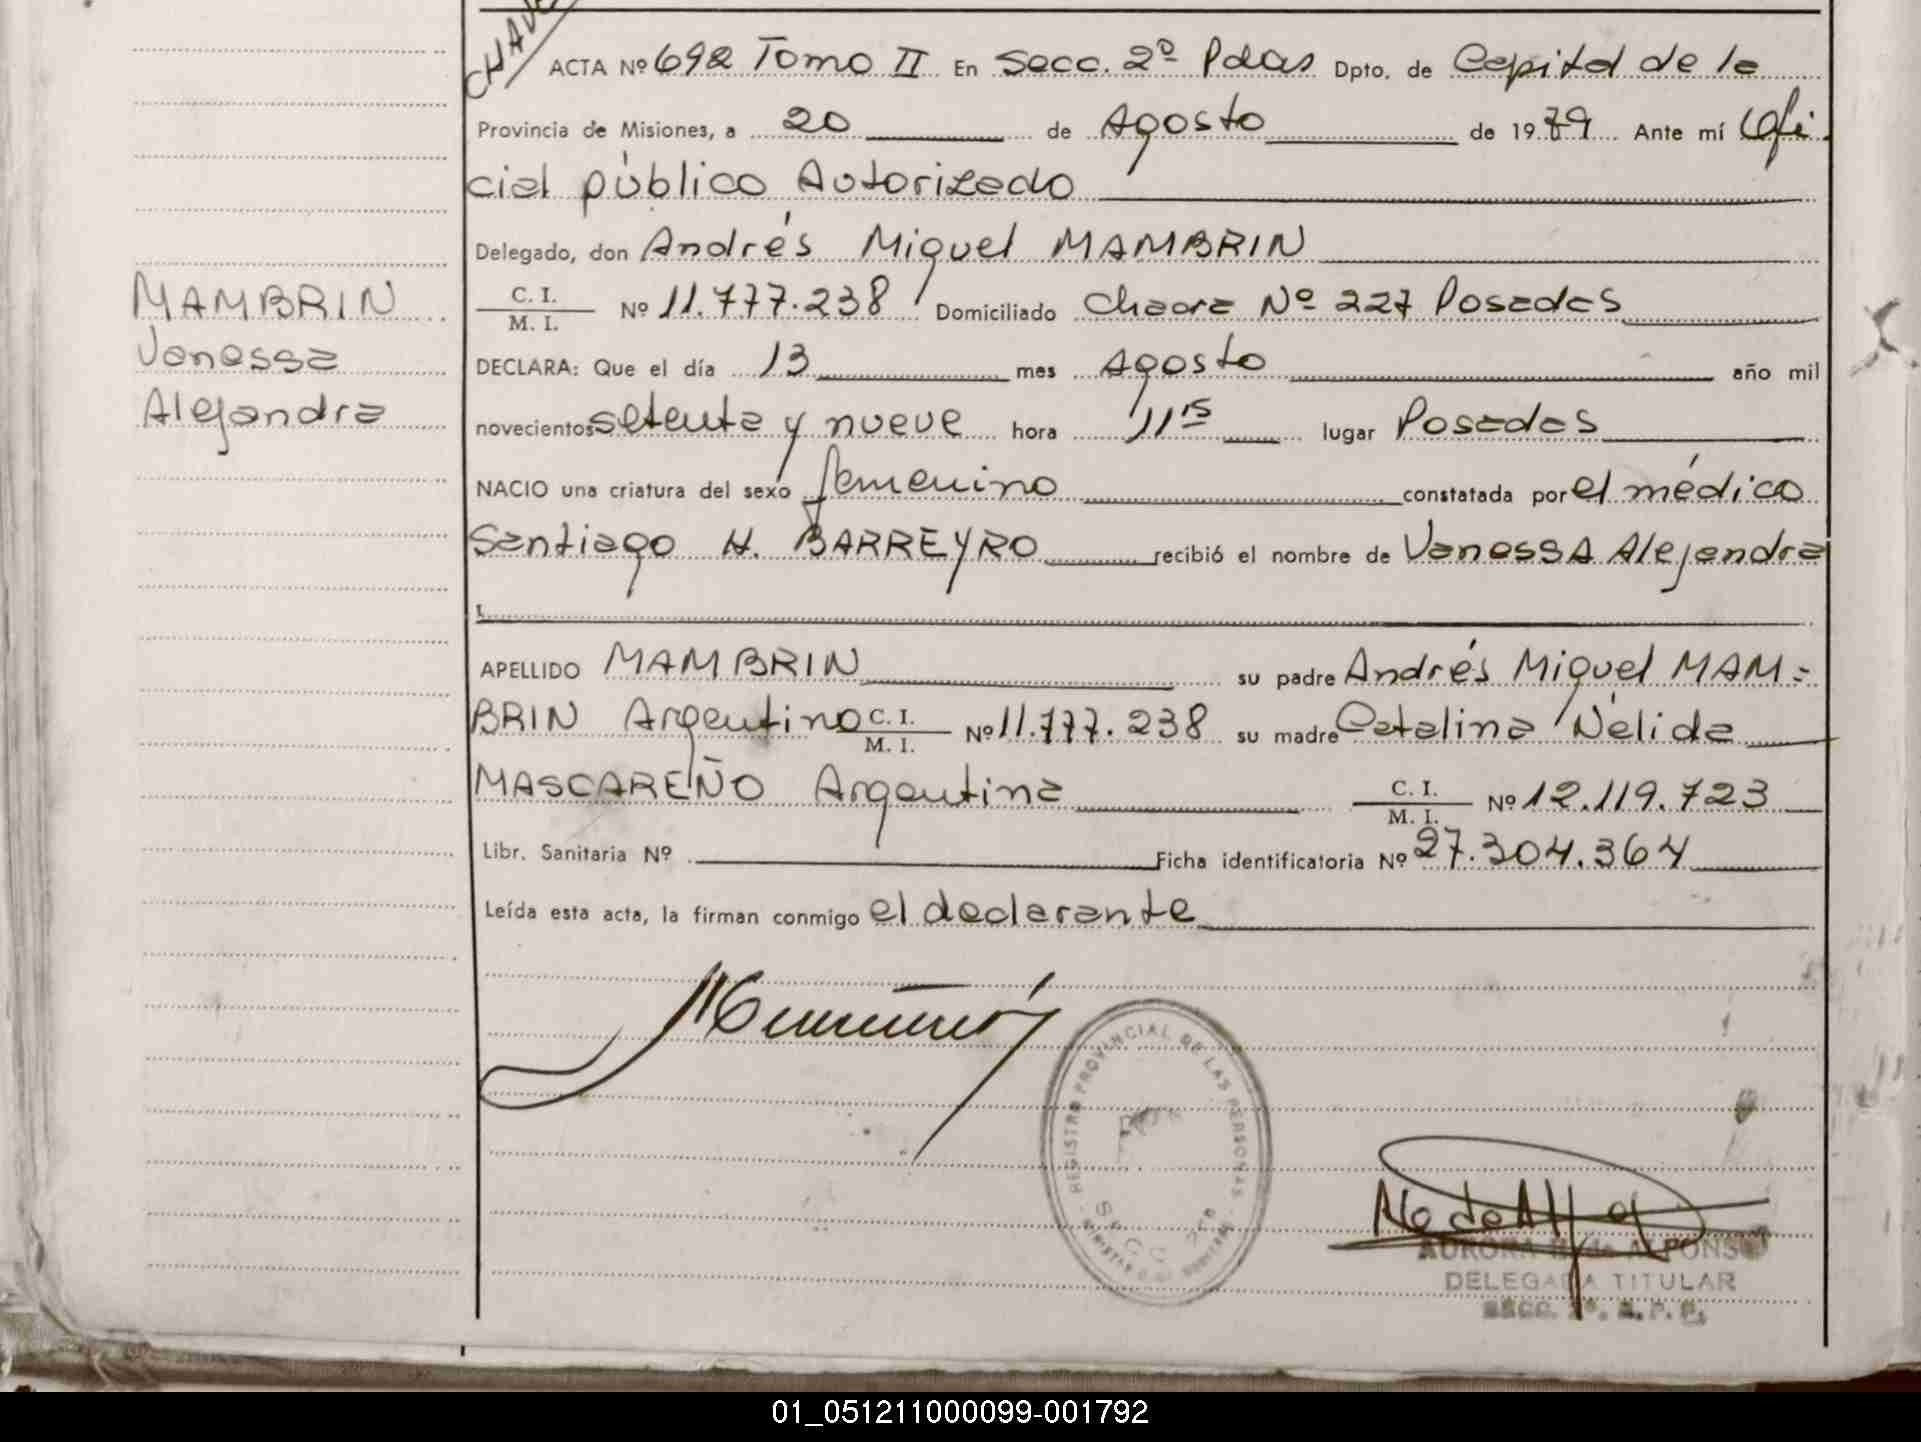 ACTA Nº 692 Tomo II En Secc. 2º Pdas Dpto. de Capital de la
Provincia de Misiones, a 20 de Agosto de 1979 Ante mí Ofi
cial público Autorizado
Delegado, don Andrés Miguel MAMBRIN
C. I.
M. I. Nº 11.777.238 Domiciliado Chacra Nº 227 Posadas
MAMBRIN
Vanessa
Alejandra
DECLARA: Que el día 13 mes Agosto año mil
novecientos setenta y nueve hora 11 15 lugar Posadas
NACIO una criatura del sexo femenino constatada por el médico
Santiago H. BARREYRO recibió el nombre de Vanessa Alejandra
APELLIDO MAMBRIN su padre Andrés Miguel MAM=
BRIN Argentino C. I. M. I. Nº 11.777.238 su madre Catalina Nélida
MASCAREÑO Argentina C. I. M. I. Nº 12.119.723
Libr. Sanitaria Nº Ficha identificatoria Nº 27.304.364
Leída esta acta, la firman conmigo el declarante
REGISTRO PROVINCIAL DE LAS PERSONAS
AURORA de ALFONSO
DELEGADA TITULAR
SECC. 2º. R. P. P.
01_051211000099-001792